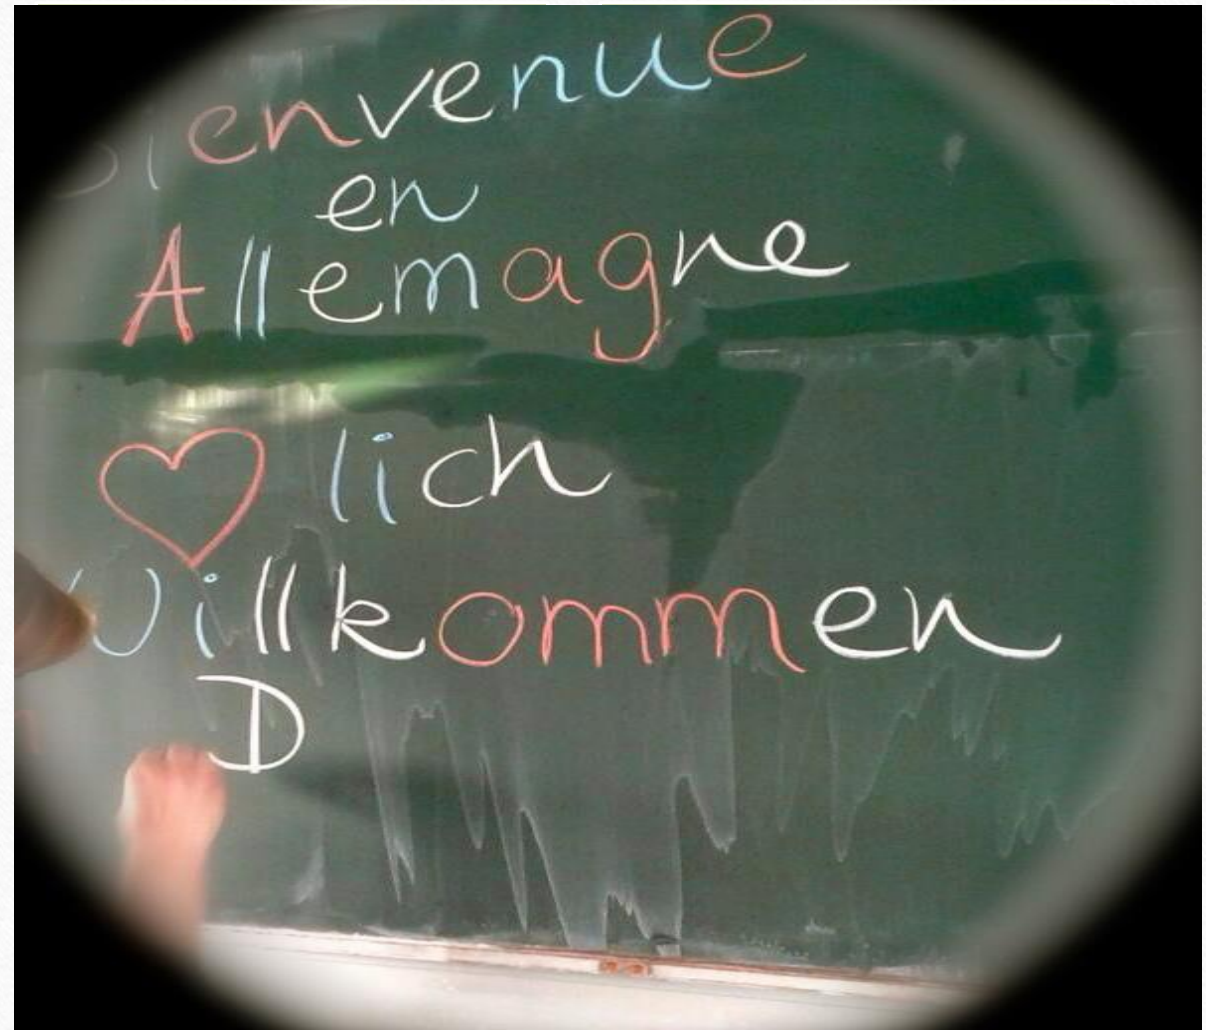 Bienvenue
en
Allemagne
♥lich
Willkommen
D